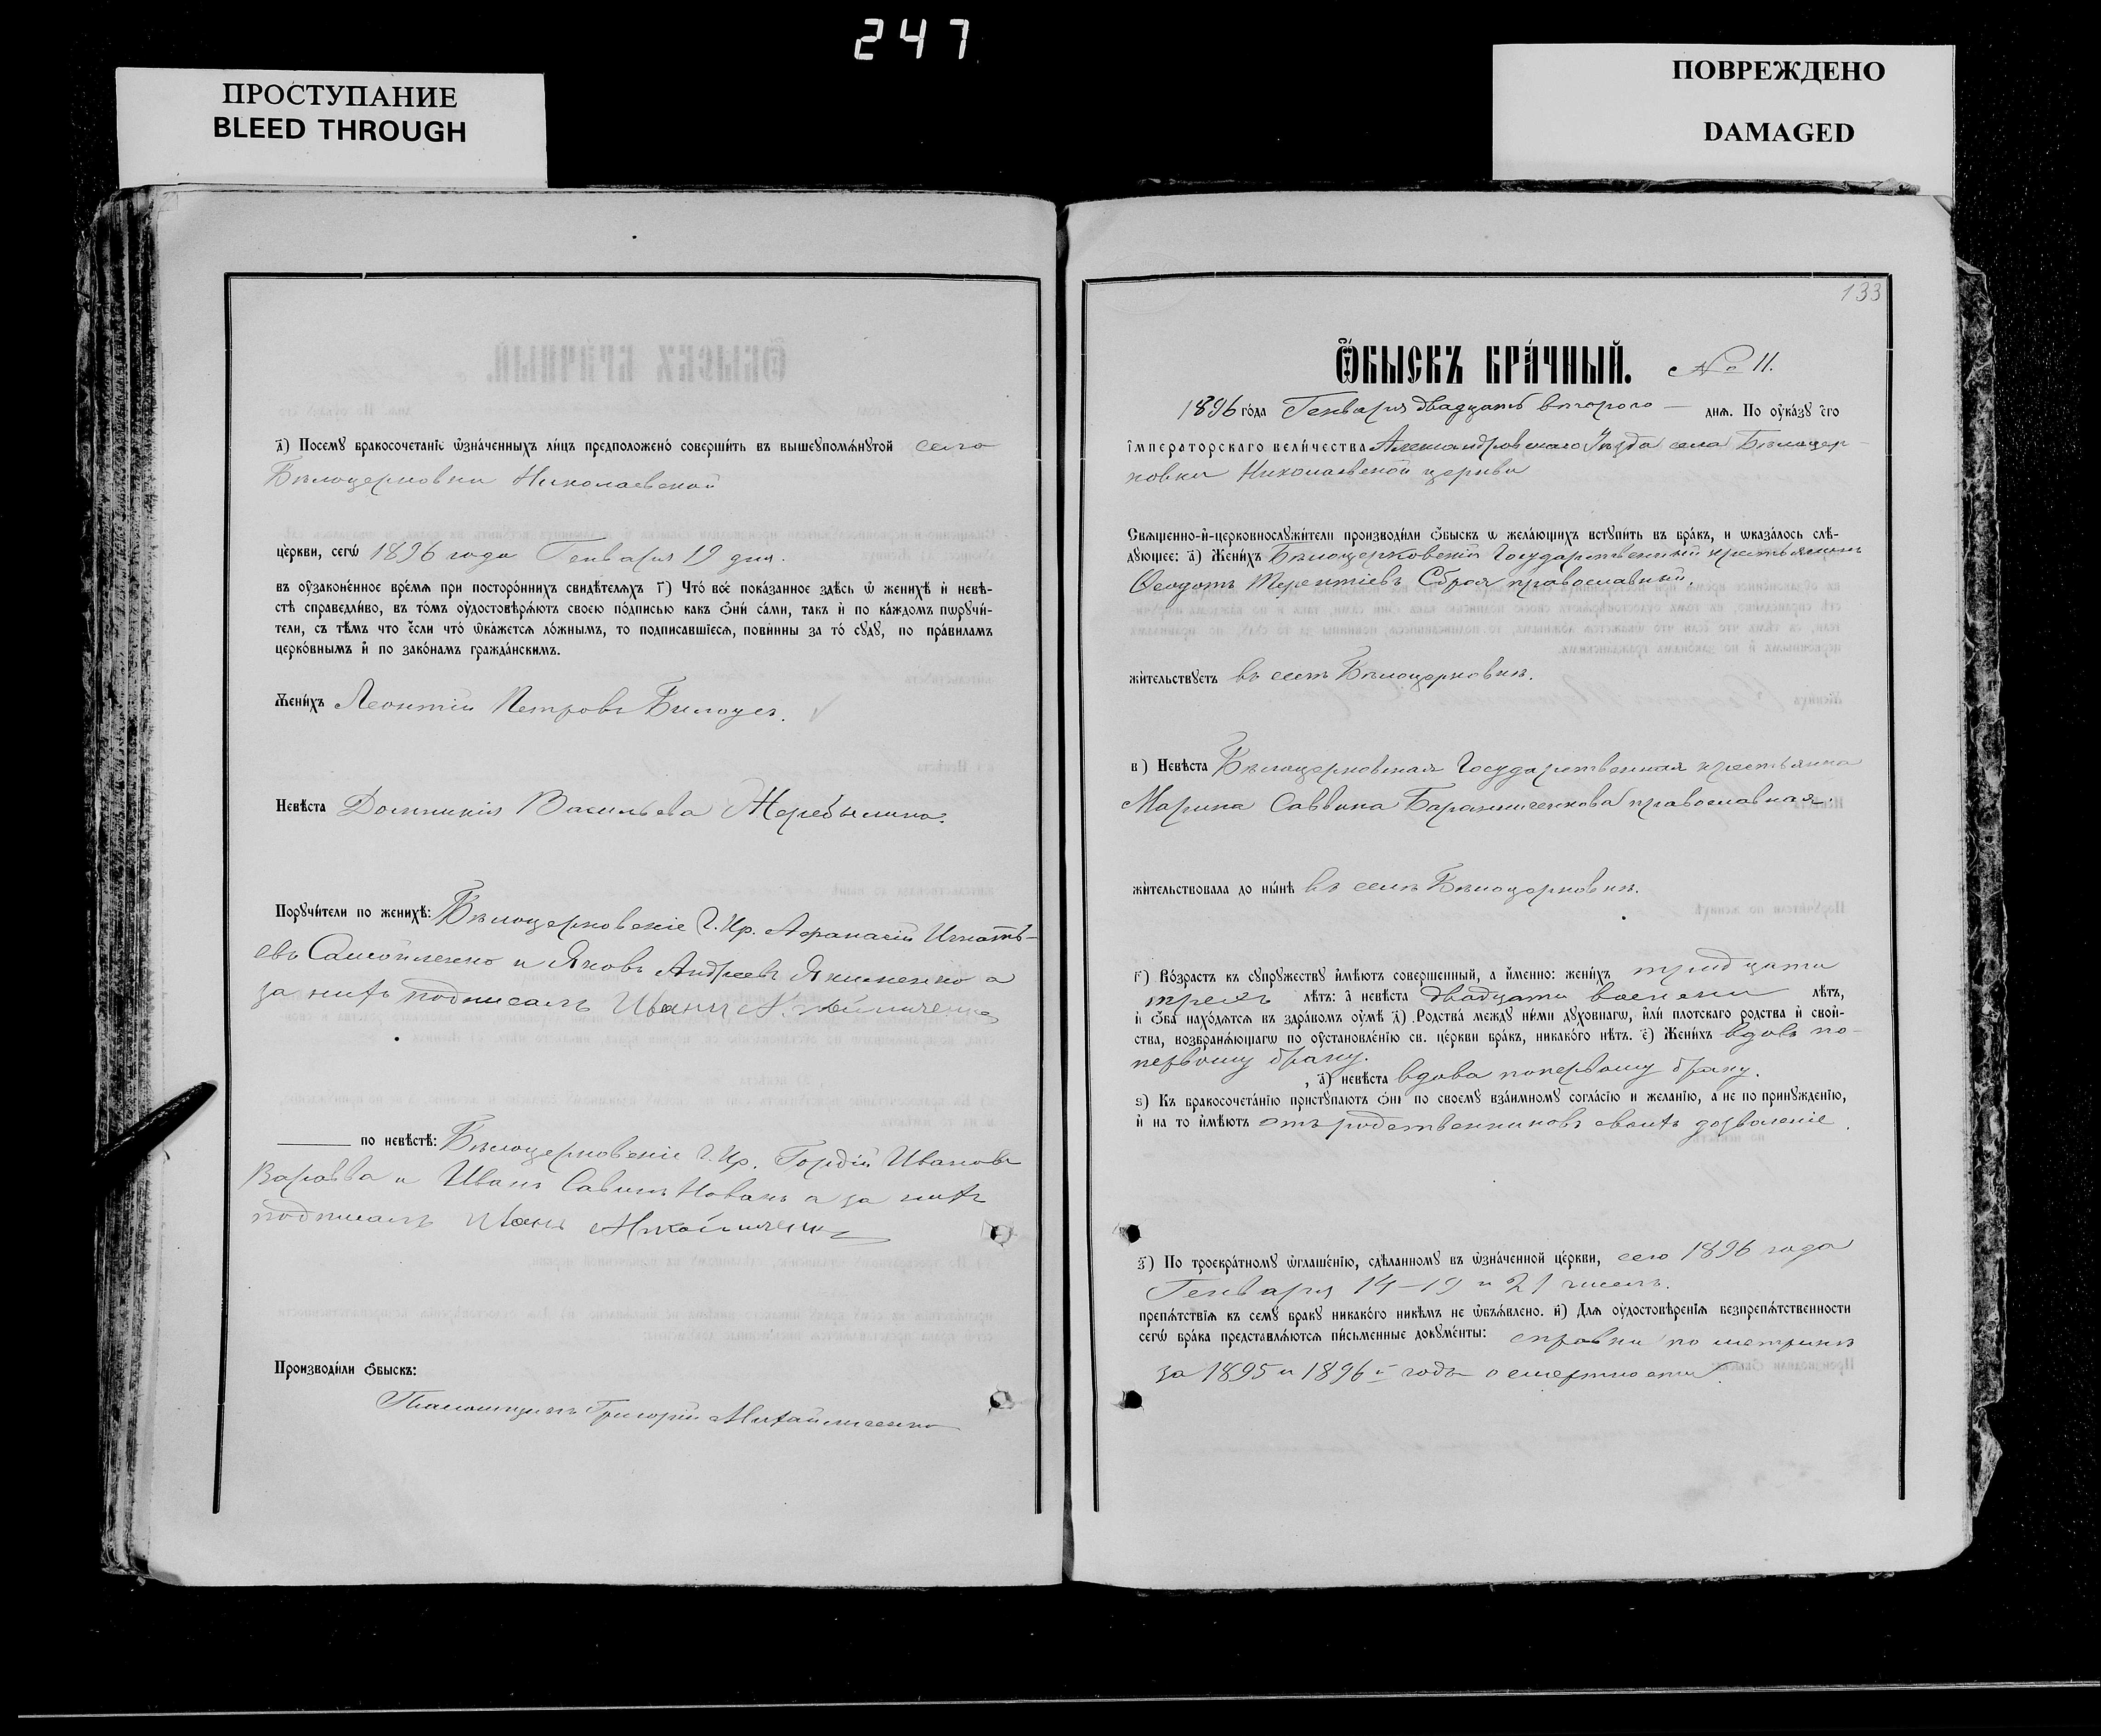 247
ПРОСТУПАНИЕ
BLEED THROUGH
ПОВРЕЖДЕНО
DAMAGED
а) Посему бракосочетанїе ѡзначенныхъ лицъ предположено совершить въ вышеупомѧнутой сего
Бѣлоцерковки Николаевской
церкви, сегѡ 1896 года Генваря 19 дня.
въ оузаконенное времѧ при постороннихъ свидѣтелѧхъ г) Что все показанное здѣсь ѿ женихѣ и невѣ-
стѣ справедливо, въ томъ оудостовѣрѧютъ своею подписью какъ ѻни сами, такъ и по каждомъ пѡручи-
тели, съ тѣмъ что если что ѿкажетсѧ ложнымъ, то подписавшїесѧ, повинны за то суду, по правиламъ
церковнымъ и по законамъ гражданскимъ.
Женихъ Леонтій Петровъ Билоусъ.
Невѣста Домникія Васильева Жеребылина.
Поручители по женихѣ: Бѣлоцерковскіе Г. Кр. Афанасій Игнатъ-
евъ Самойленко и Яковъ Андреевъ Якименко а
за нихъ подписалъ Иванъ
по невѣстѣ: Бѣлоцерковскіе Г. Кр. Гордій Ивановъ
Варавва и Иванъ Савинъ Новакъ а за нихъ
подписалъ Иванъ
Производили ѻбыскъ:
Псаломщикъ Григорій Михайличенко
133
Ѻбыскъ брачный. № 11.
1896 года Генваря двадцать второго — днѧ. По оуказу его
императорскаго величества Александровскаго Уѣзда села Бѣлоцер-
ковки Николаевской церкви
Свѧщенно-и-церковнослужители производили ѻбыскъ ѡ желающихъ вступить въ бракъ, и ѡказалось слѣ-
дующее: а) Женихъ Бѣлоцерковскій Государственный крестьянинъ
Ѳеодотъ Терентіевъ Сброя православный.
жительствуетъ въ селѣ Бѣлоцерковкѣ.
в) Невѣста Бѣлоцерковская Государственная крестьянка
Марина Саввина Баранниченкова православная.
жительствовала до нынѣ въ селѣ Бѣлоцерковкѣ.
г) Возрастъ къ супружеству имѣютъ совершенный, а именно: женихъ тридцати
трехъ лѣтъ: а невѣста двадцати восьми лѣтъ,
и ѻба находѧтсѧ въ здравомъ оумѣ д) Родства между ними духовнагѡ, или плотскаго родства и свой-
ства, возбранѧющагѡ по оустановленїю св. церкви бракъ, никакого нѣтъ. е) Женихъ вдовъ по-
первому браку.
, а) невѣста вдова поперъвому браку.
ѕ) Къ бракосочетанїю приступаютъ ѻни по своему взаимному согласїю и желанїю, а не по принужденїю,
и на то имѣютъ отъ родственниковъ своихъ дозволеніе.
з) По троекратному ѡглашенїю, сдѣланному въ ѡзначенной церкви, сего 1896 года
Генваря 14–19 и 21 чиселъ.
препѧтствїѧ къ сему браку никакого никѣмъ не ѡбъѧвлено. и) Длѧ оудостовѣренїѧ безпрепѧтственности
сегѡ брака представлѧютсѧ письменные документы: справки по метрикѣ
за 1895 и 1896 й годъ о смертности.